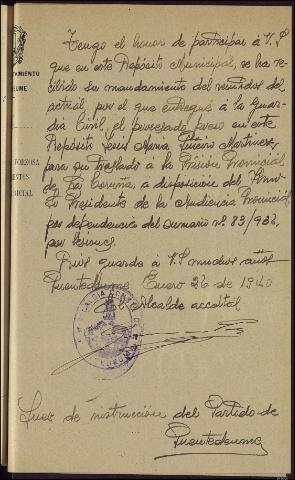 Tengo el honor de participar á V.S
que en este Depósito Municipal, se ha re-
cibido su mandamiento del veintidos del
actual, por el que entregué á la Guar-
dia Civil, el procesado preso en este
Depósito José Maria Martinez,
para su traslado a la Prisión Provincial
de La Coruña, a disposición del Iltmo
Sr Presidente de la Audiencia Provincial,
por dependencia del sumario nº 83/932,
por lesiones.
Dios guarde á V.S muchos años
Puentedeume Enero 26 de 1940
Alcalde acctal
Juez de instrucción del Partido de
Puentedeume
TAMIENTO
EUME
FORZOSA
DICIAL